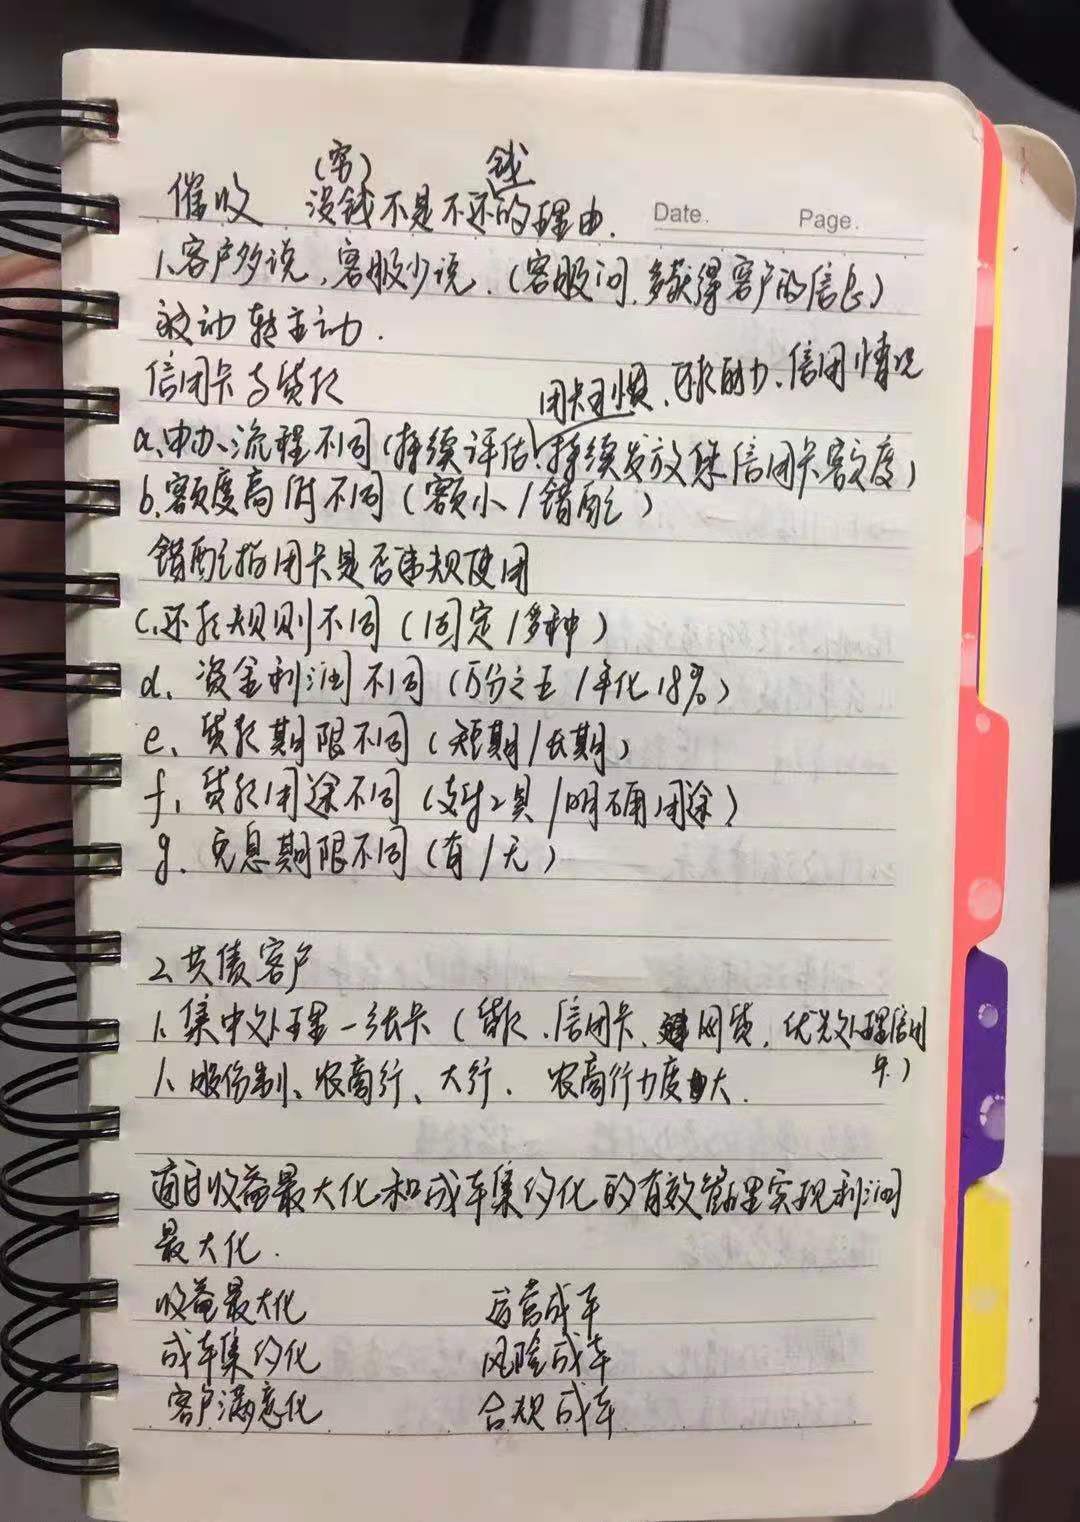 (穷) 钱
催收 没钱不是不还的理由.
Date. Page.
1.客户多说,客服少说.(客服问,多获得客户的信息)
被动转主动.
信用卡与贷款
用卡习惯、还款能力、信用情况
a、申办流程不同(持续评估、持续发放您信用卡额度)
b.额度高低不同(额小/错配)
错配指用卡是否违规使用
c.还款规则不同(固定/多种)
d、资金利润不同(万分之五/年化18%)
e、贷款期限不同(短期/长期)
f、贷款用途不同(支付工具/明确用途)
g、免息期限不同(有/无)
2.共债客户
1.集中处理一张卡(贷款、信用卡、网贷,优先处理信用卡.)
1、股份制、农商行、大行. 农商行力度大.
收益最大化和成本集约化的有效管理实现利润
最大化.
收益最大化 运营成本
成本集约化 风险成本
客户满意化 合规成本